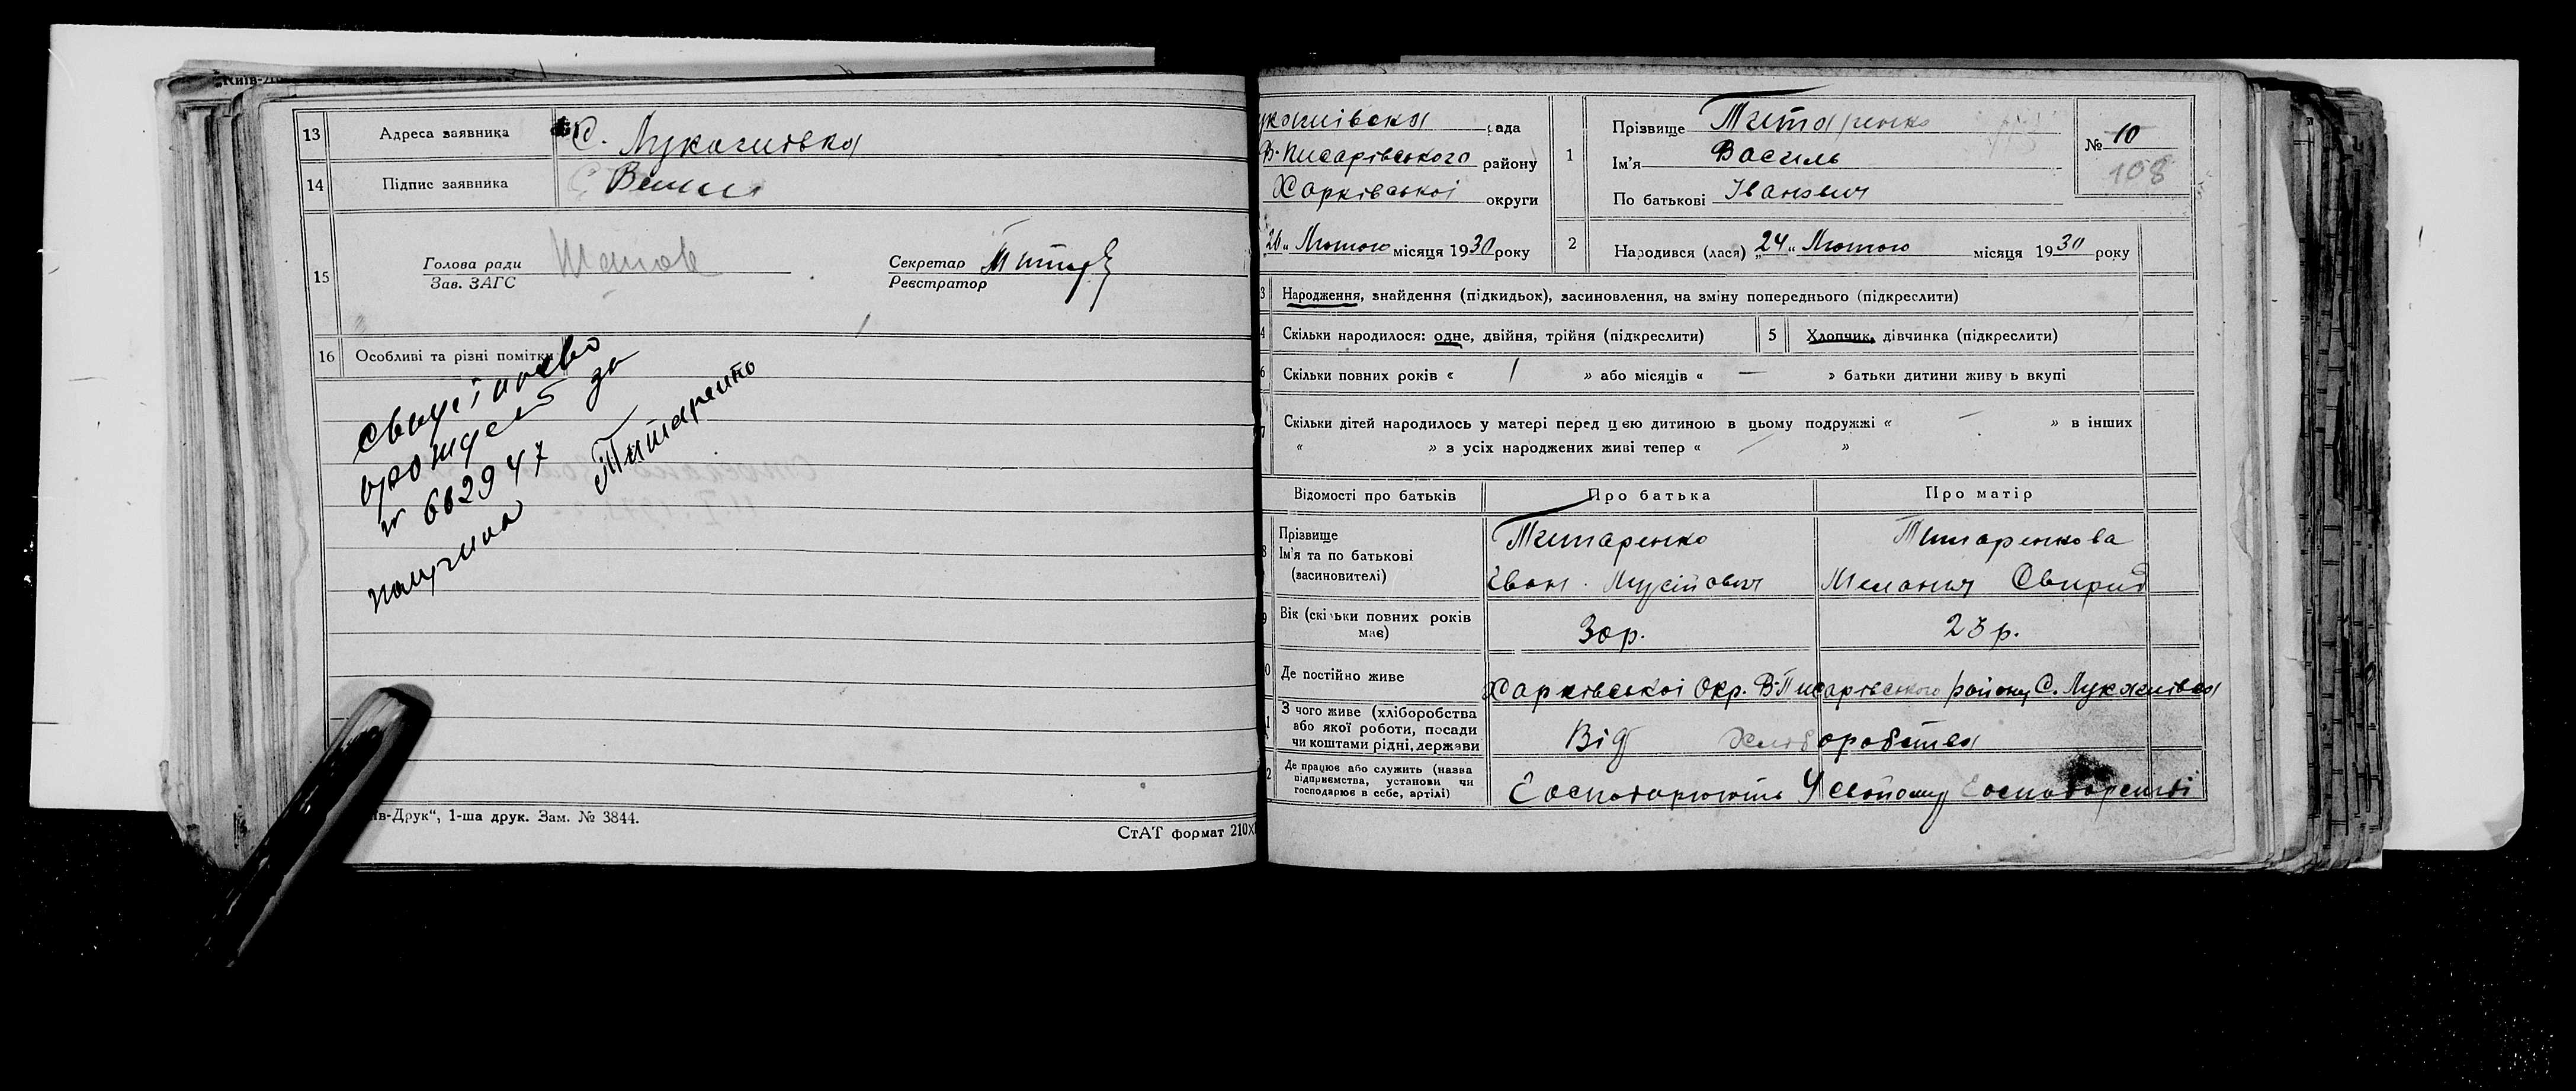 Київ-
13 Адреса заявника С. Лукашівка
14 Підпис заявника
15 Голова ради Зав. ЗАГС Секретар Реєстратор
16 Особливі та різні помітки
свидітельво
рожден за
№ 662947
получила Титаренко
ів-Друк“, 1-ша друк. Зам. № 3844.
СтАТ формат 210Х
укашівска рада
В-Писарівського району
Харківської округи
„26“ Лютого місяця 1930 року
1 Прізвище Титаренко
Ім'я Василь
По батькові Іванович
№ 10
108
2 Народився (лася) „24“ Лютого місяця 1930 року
3 Народження, знайдення (підкидьок), засиновлення, на зміну попереднього (підкреслити)
4 Скільки народилося: одне, двійня, трійня (підкреслити) 5 Хлопчик, дівчинка (підкреслити)
6 Скільки повних років « 1 » або місяців « — » батьки дитини живу ь вкупі
7 Скільки дітей народилось у матері перед цією дитиною в цьому подружжі « - » в інших
« » з усіх народжених живі тепер « »
Відомості про батьків Про батька Про матір
8 Прізвище Титаренко Титаренкова
Ім'я та по батькові
(засиновителі) Іван Мусійович Меланія Свирид
9 Вік (скільки повних років має) 30р. 23р.
10 Де постійно живе Харківської Окр. В-Писарівського району С. Лукашівка
11 З чого живе (хліборобства
або якої роботи, посади
чи коштами рідні, держави Від хліборобства
12 Де працює або служить (назва
підприємства, установи чи
господарює в себе, артілі) Господарюють У свойому Господарстві